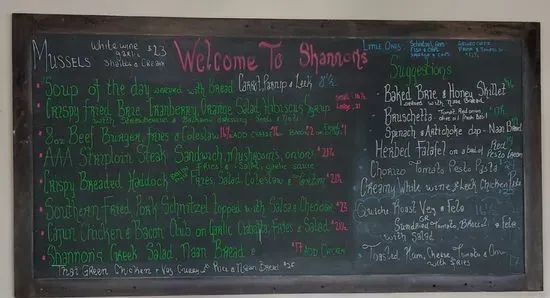 MUSSELS white wine garlic $23
Shallots & Cream
Welcome To Shannon's
LITTLE ONES
Soup of the day served with Bread Carrot, Parsnip & Leek
Crispy Fried Brie Cranberry Orange Salad Hibiscus Syrup
with Strawberries & Balsamic dressing Seeds & Nuts
8oz Beef Burger, Fries & Coleslaw ADD CHEESE
AAA Striploin Steak Sandwich, Mushrooms, onions
Fries & Salad garlic sauce
Crispy Breaded Haddock Fries, Salad Coleslaw & Tartar
Southern Fried Pork Schnitzel topped with Salsa & Cheese $23
Cajun Chicken & Bacon Club on Garlic Ciabatta, Fries & Salad
Shannon's Greek Salad, Naan Bread $17 ADD CHICKEN
Thai Green Chicken & Veg Curry Rice & Naan Bread
Suggestions
Baked Brie & Honey Skillet
served with Naan Bread
Bruschetta Tomato, Red onion olive oil Fresh Basil
Spinach & Artichoke dip - Naan Bread
Herbed Falafel on a bed of
Chorizo Tomato Pesto Pasta
Creamy White wine & Leek Chicken Pasta
Quiche Roast Veg & Feta
OR
Sundried Tomato, Broccoli & Feta
with Salad
Toasted Ham, Cheese, Tomato & Onion
with Fries